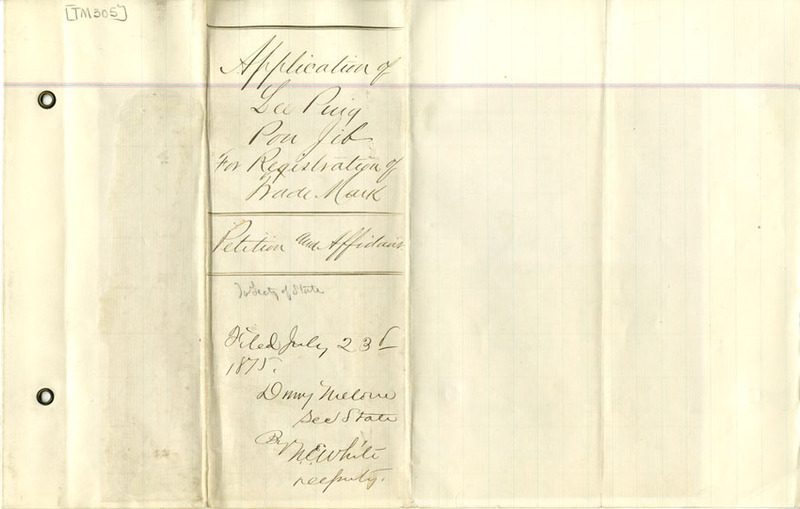 [TM305]
Application of
Lee Ping
Pon Jib
For Registration of
Trade Mark
Petition and Affidavit
To Secty of State
Filed July 23d
1875.
Drury Melone
Sec State
By
White
Deputy.